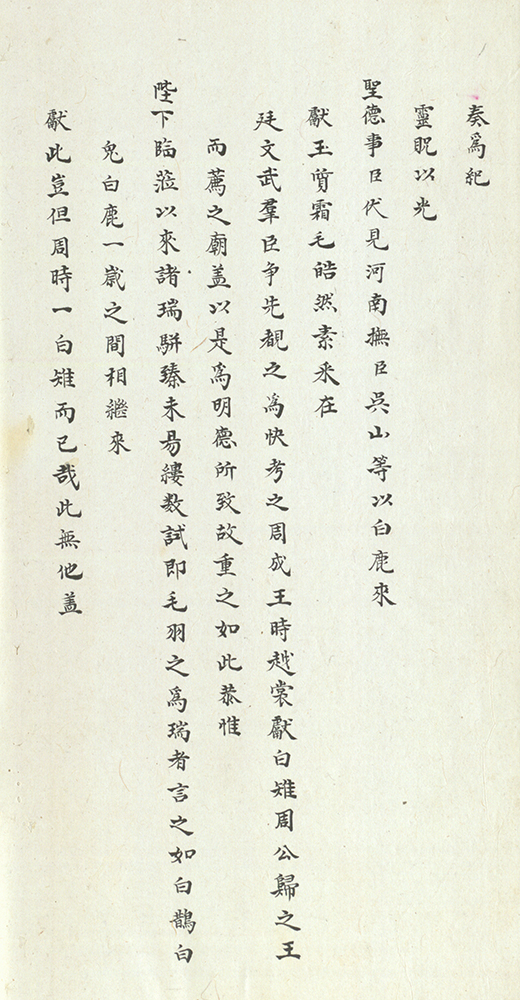 奏爲紀
靈貺以光
聖德事臣伏見河南撫臣吳山等以白鹿來
獻玉質霜毛皓然素釆在
廷文武羣臣争先覩之爲快考之周成王時越裳獻白雉周公歸之王
而薦之廟盖以是爲明德所致故重之如此恭惟
陛下臨蒞以來諸瑞駢臻未易縷数試即毛羽之爲瑞者言之如白鵲白
兔白鹿一嵗之間相繼來
獻此豈但周時一白雉而已哉此無他盖